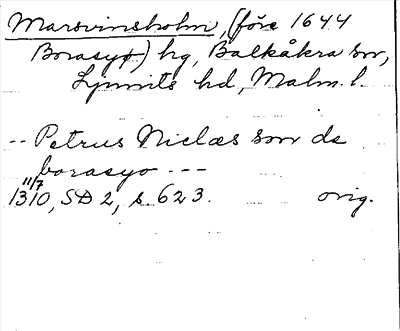 Marsvinsholm, (före 1644
Borasyø) hg, Balkåkra sn,
Ljunits hd, Malm. l.
-- Petrus Niclæs son de
borasyo ---
1310 11/7, SD 2, s. 623. orig.